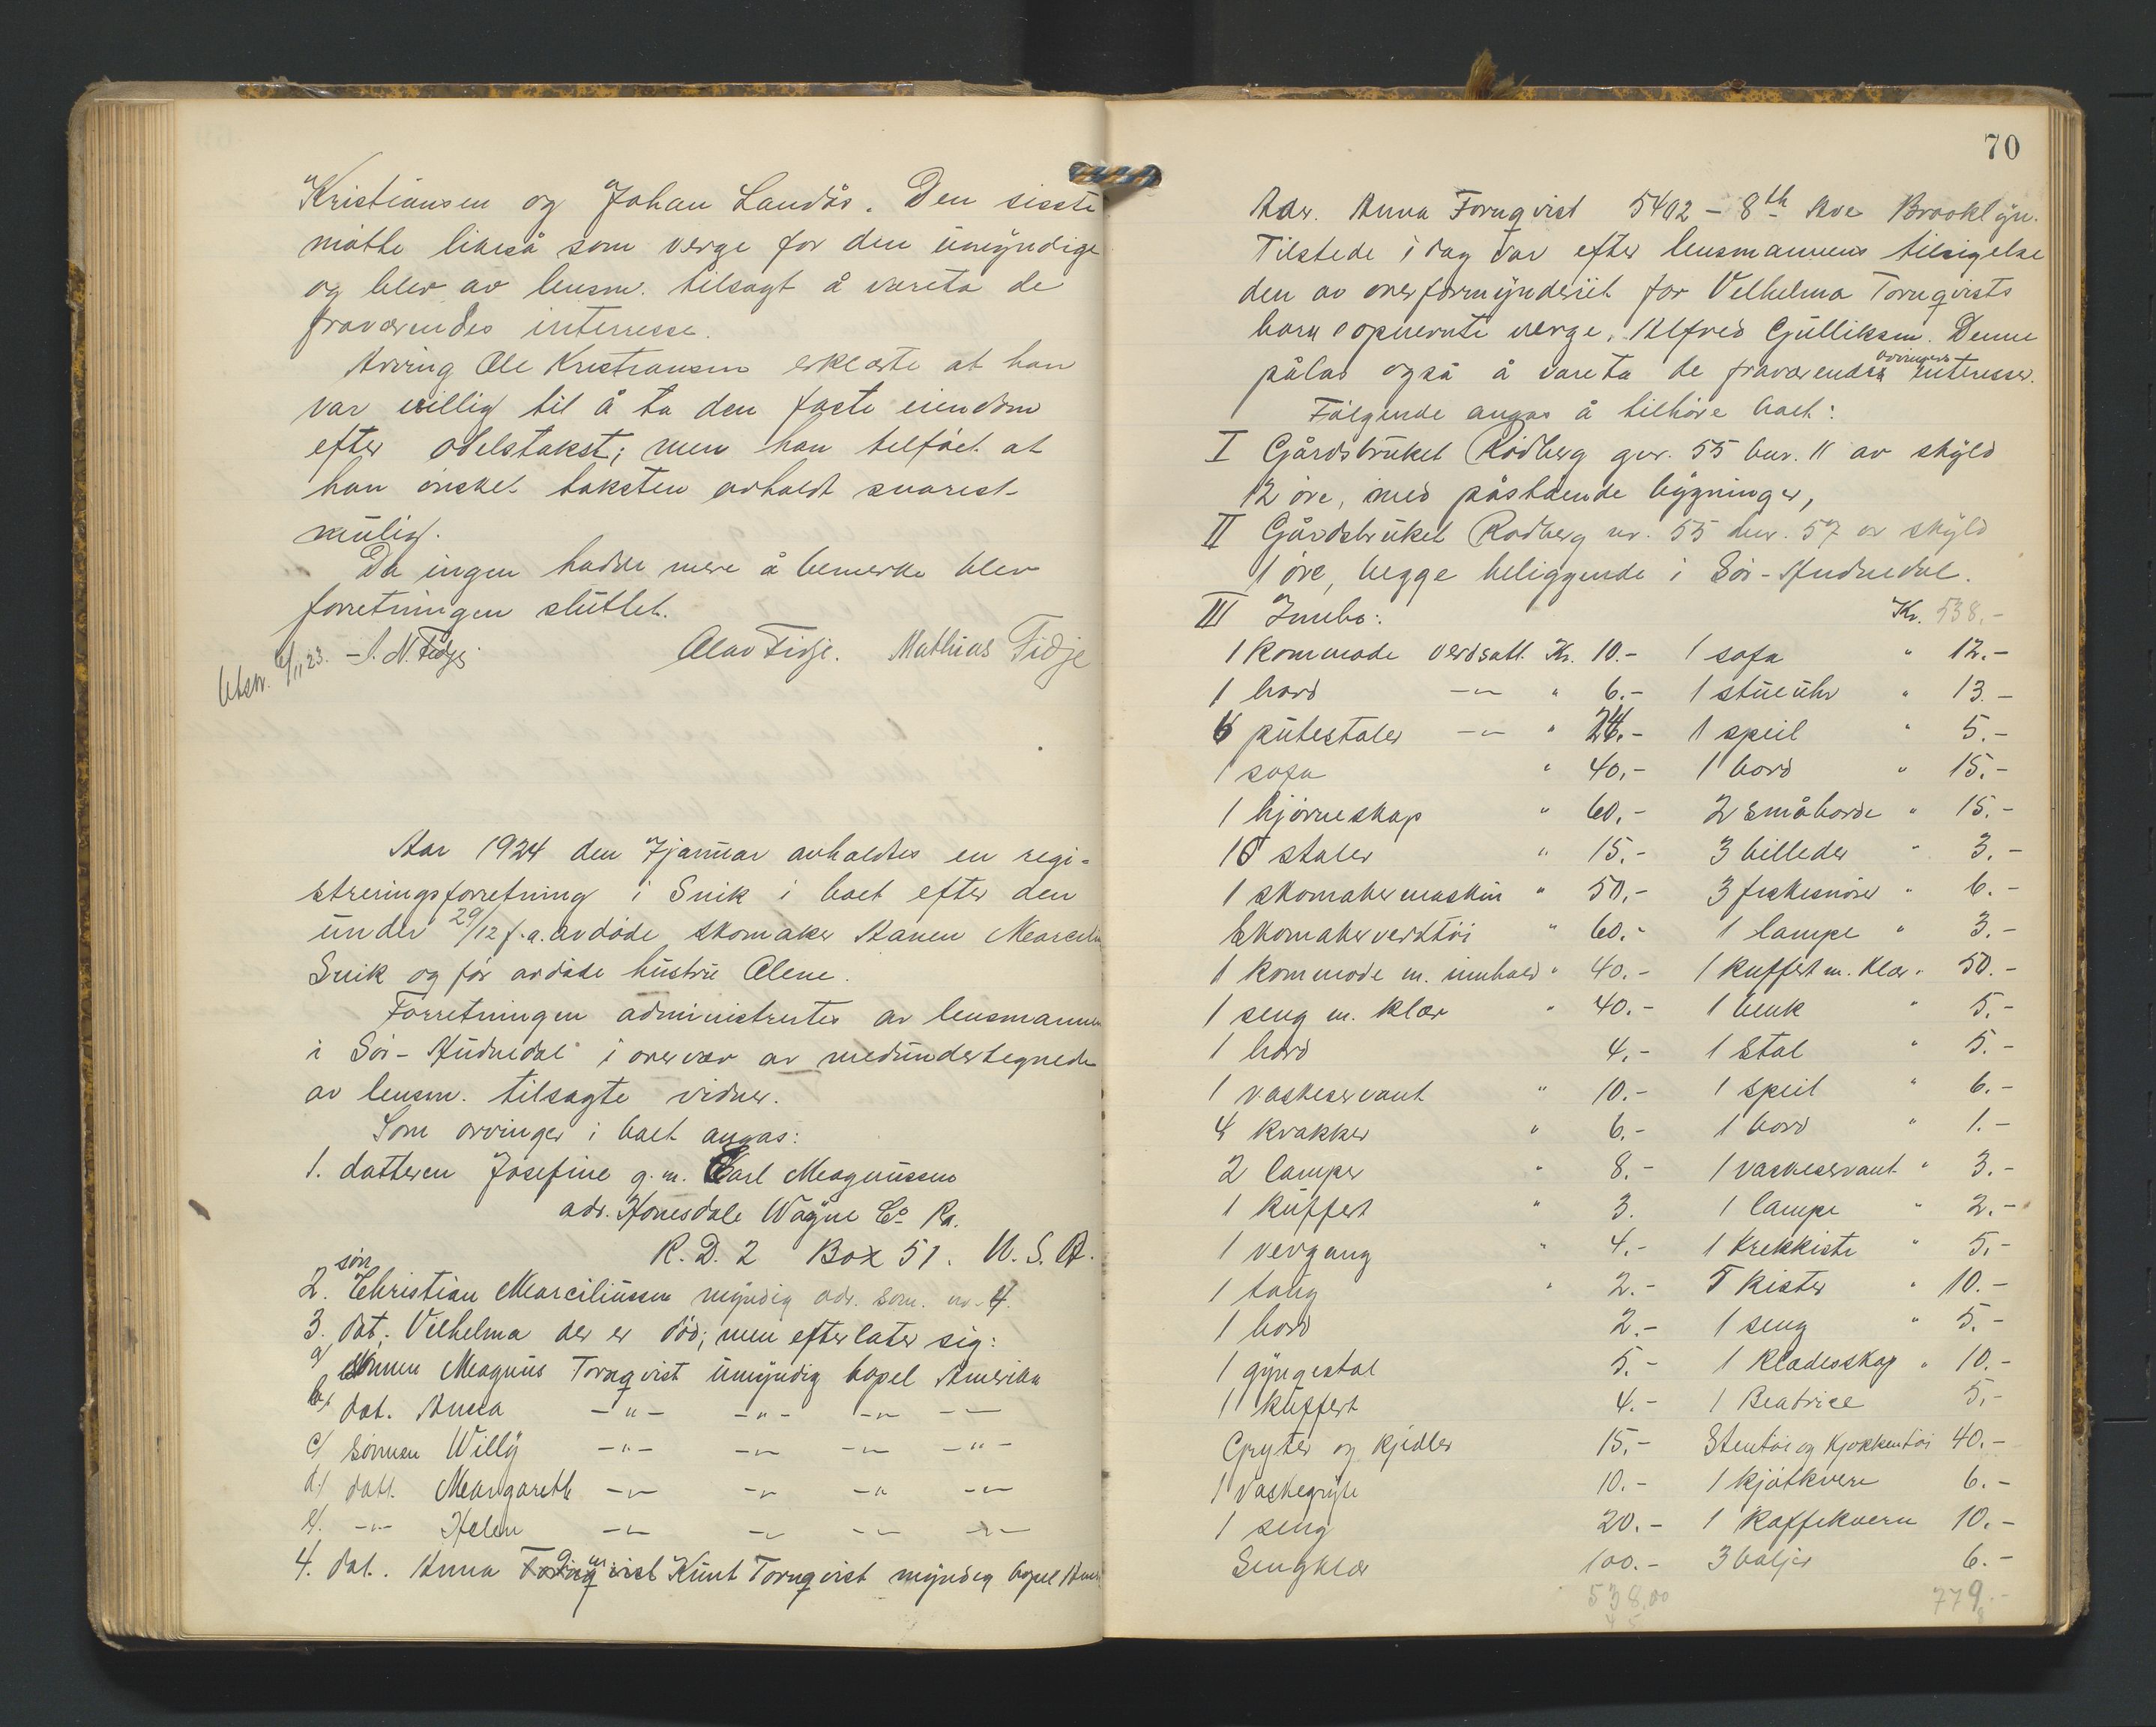 Kristiansen og Johan Landås. Den sisste
møtte likeså som verge for den umyndige
og blev av lensm. tilsagt å vareta de
fraværendes interesse.
Arving Ole Kristiansen erklærte at han
var villig til å ta den faste eiendom
efter odelstakst; men han tilføiet at
han ønsket taksten avholdt snarest
mulig.
Da ingen hadde mere å bemerke blev
forretningen sluttet.
Utskr. 6/11 23. J. N. Fidje. Olav Fidje. Mathias Fidje
Aar 1924 den 7 januar avholdtes en regi-
streringsforretning i Snik i boet efter den
under 29/12 f.a. avdøde skomaker Aanen Marcelius
Snik og før avdøde hustru Olene.
Forretningen administrertes av lensmannen
i Sør-Audnedal i overvær av medundertegnede
av lensm. tilsagte vidner.
Som arvinger i boet angas:
1. datteren Josefine g. m. Karl Magnussen
adr. Honesdale Wayne Co Pa.
R. D. 2 Box 51. U. S. A.
2. søn Christian Marciliussen myndig adr. som nr. 4.
3. dat. Vilhelma der er død; men efterlater sig:
a/ sønnen Magnus Tornqvist umyndig bopel Amerika
b/ dat. Anna -"- -"- -"- -"-
c/ sønnen Willy -"- -"- -"- -"-
d/ datt. Margareth -"- -"- -"- -"-
e/ -"- Helen -"- -"- -"- -"-
4. dat. Anna g. m. Knut Tornqvist myndig bopel Amer.
70
Adr. Anna Tornqvist 5402 - 8th Ave Brooklyn.
Tilstede i dag var efter lensmannens tilsigelse
den av overformynderiet for Velhelma Tornqvists
barn opnevnte verge, Alfred Gulliksen. Denne
pålas også å vareta de fraværende arvingers interesser.
Følgende angas å tilhøre boet:
I Gårdsbruket Rødberg gnr. 55 bnr. 11 av skyld
12 øre, med påstående bygninger,
II Gårdsbruket Rødberg nr. 55 bnr. 57 av skyld
1 øre, begge beliggende i Sør-Audnedal.
III Innbo: Kr. 538.-
1 kommode verdsatt Kr. 10.- 1 sofa " 12.-
1 bord -"- " 6.- 1 stueuhr " 13.-
6 putestoler -"- " 24.- 1 speil " 5.-
1 sofa " 40.- 1 bord " 15.-
1 hjørneskap " 60.- 2 småborde " 15.-
15 stoler " 15.- 3 billeder " 3.-
1 skomakermaskin " 50.- 3 fiskesnører " 6.-
Skomakerverktøi " 60.- 1 lampe " 3.-
1 kommode m. innhold " 40.- 1 kuffert m. klær " 50.-
1 seng m. klær " 40.- 1 benk " 5.-
1 bord 4.- 1 stol " 5.-
1 vaskeservant " 10.- 1 speil " 6.-
4 krakker " 6.- 1 bord " 1.-
2 lamper " 8.- 1 vaskeservant " 3.-
1 kuffert " 3. 1 lampe " 2.-
1 vevgang " 4.- 1 trekkiste " 5.-
1 talig " 2.- 5 kister " 10.-
1 bord 2.- 1 seng " 5.-
1 gyngestol 5.- 1 klædesskap " 10.-
1 kuffert 4.- 1 Beatrice 5.-
Gryter og kjedler 15.- Stentøi og kjøkkentøi 40.-
1 vaskegryte 10.- 1 kjøtkvern 6.-
1 seng 20.- 1 kaffekvern 10.-
Sengklær 100.- 3 baljer 6.-
538.00 779.-